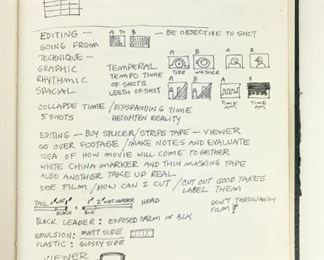 EDITING – A TO B – BE OBJECTIVE TO SHOT
GOING FROM
TECHNIQUE – A B A B
GRAPHIC TEMPERAL
RHYTHMIC TEMPO TIME TIRE WASHER
SPACIAL OF SHOTS
LEGTH OF SHOT
COLLAPSE TIME / EXSPANDING TIME TIME TIME
5 SHOTS HEIGHTEN REALITY AM PM
EDITING – BUY SPLICER / STRIPS TAPE – VIEWER
GO OVER FOOTAGE / MAKE NOTES AND EVALUATE
IDEA OF HOW MOVIE WILL COME TO GETHER
WHITE CHINA MARKER AND THIN MASKING TAPE
ALSO ANOTHER TAKE UP REAL
SEE FILM / HOW CAN I CUT / CUT OUT GOOD TAKES
LABEL THEM
TAIL LEADER HEAD DON'T THROW AWAY
BLACK BLK FILM!
BLACK LEADER: EXPOSED IN BLK
EMULSION: MATT SIDE
PLASTIC: GLOSSY SIDE
VIEWER